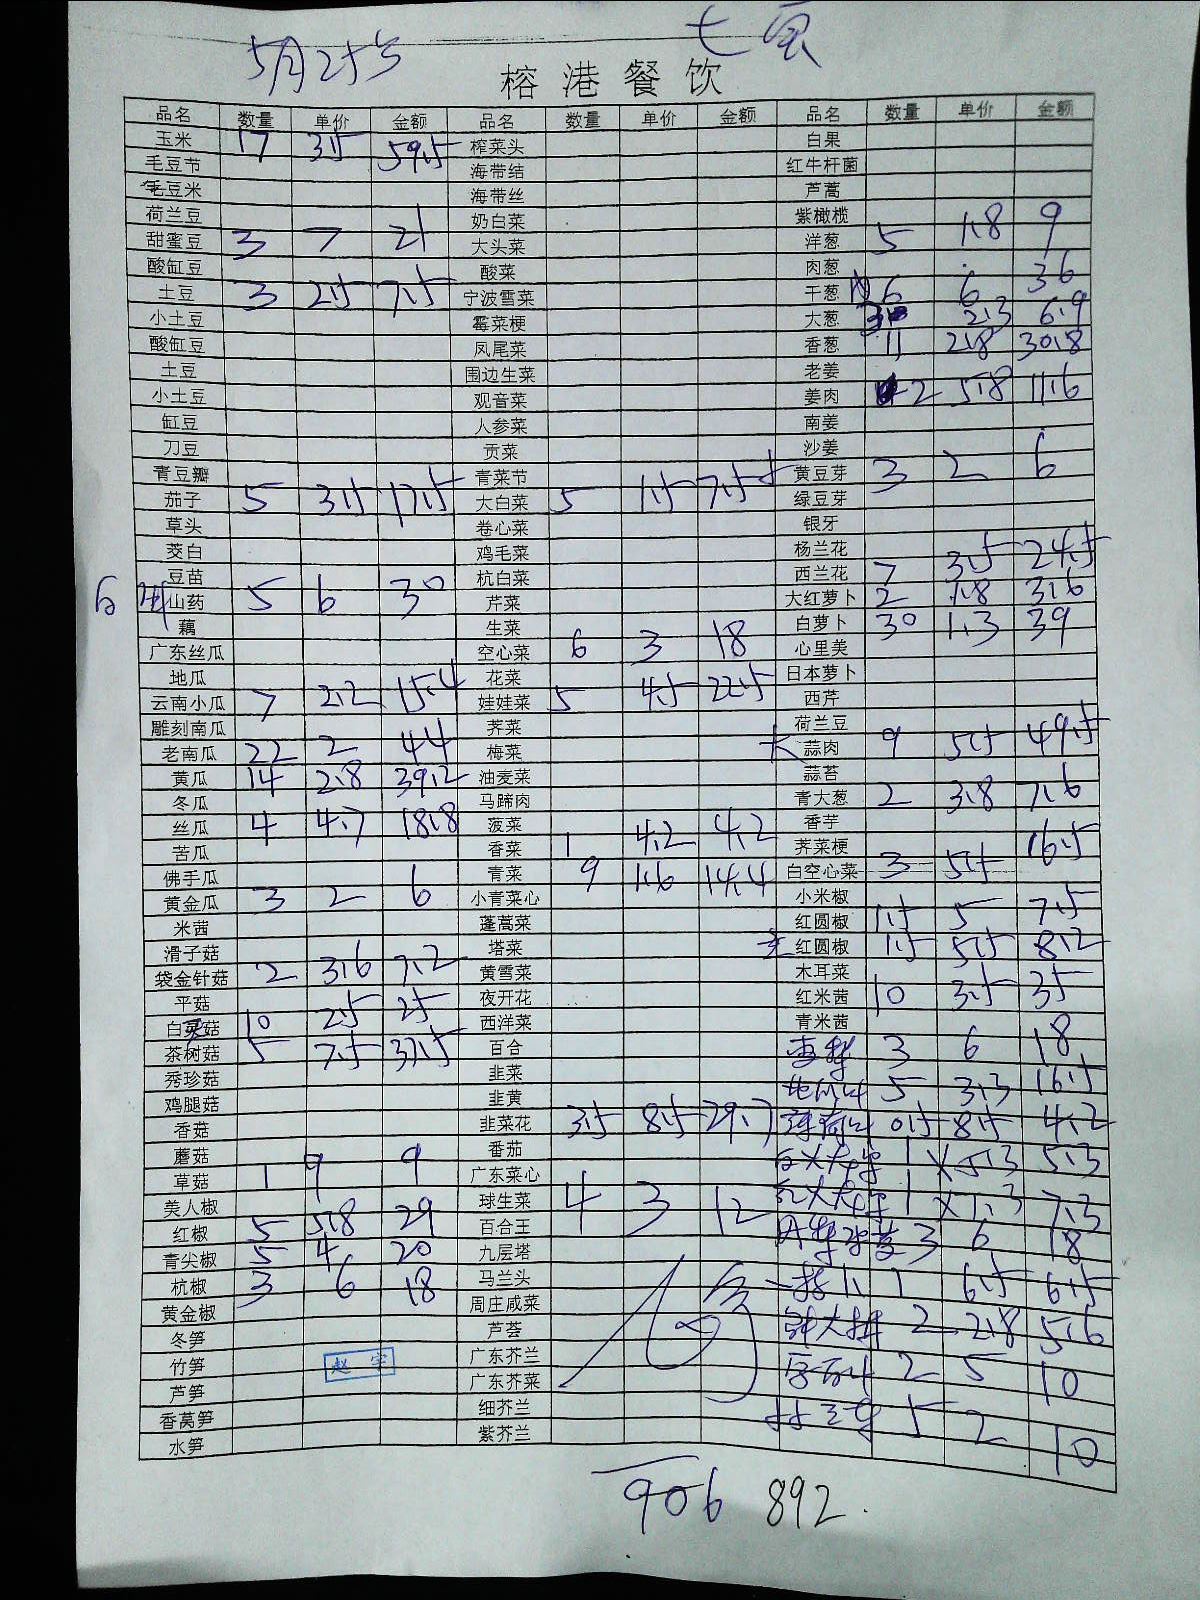 5月25号
榕港餐饮
品名 数量 单价 金额 品名 数量 单价 金额 品名 数量 单价 金额
玉米 17 3.5 59.5 榨菜头 白果
毛豆节 海带结 红牛杆菌
毛豆米 海带丝 芦蒿
荷兰豆 奶白菜 紫橄榄
甜蜜豆 3 7 21 大头菜 洋葱 5 1.8 9
酸缸豆 酸菜 肉葱
土豆 3 2.5 7.5 宁波雪菜 干葱 6 6 36
小土豆 霉菜梗 大葱 3 2.3 6.9
酸缸豆 凤尾菜 香葱 11 2.8 30.8
土豆 围边生菜 老姜
小土豆 观音菜 姜肉 2 5.8 11.6
缸豆 人参菜 南姜
刀豆 贡菜 沙姜
青豆瓣 青菜节 黄豆芽 3 2 6
茄子 5 3.5 17.5 大白菜 5 1.5 7.5 绿豆芽
草头 卷心菜 银牙
茭白 鸡毛菜 杨兰花
豆苗 杭白菜 西兰花 7 3.5 24.5
山药 5 6 30 芹菜 大红萝卜 2 1.8 3.6
藕 生菜 白萝卜 30 1.3 39
广东丝瓜 空心菜 6 3 18 心里美
地瓜 花菜 日本萝卜
云南小瓜 7 2.2 15.4 娃娃菜 5 4.5 22.5 西芹
雕刻南瓜 荠菜 荷兰豆
老南瓜 22 2 44 梅菜 蒜肉 9 5.5 49.5
黄瓜 14 2.8 39.2 油麦菜 蒜苔
冬瓜 马蹄肉 青大葱 2 3.8 7.6
丝瓜 4 4.7 18.8 菠菜 香芋
苦瓜 香菜 1 4.2 4.2 荠菜梗
佛手瓜 青菜 9 1.6 14.4 白空心菜 3 5.5 16.5
黄金瓜 3 2 6 小青菜心 小米椒
米茜 蓬蒿菜 红圆椒 1.5 5 7.5
滑子菇 塔菜 红圆椒 1.5 5.5 8.2
袋金针菇 2 3.6 7.2 黄雪菜 木耳菜
平菇 夜开花 红米茜 10 3.5 35
白灵菇 10 2.5 25 西洋菜 青米茜
茶树菇 5 7.5 37.5 百合 3 6 18
秀珍菇 韭菜 5 3.3 16.5
鸡腿菇 韭黄
香菇 韭菜花 3.5 8.5 29.7 0.5 8.5 4.2
蘑菇 番茄 1 5.3 5.3
草菇 1 9 9 广东菜心
美人椒 球生菜 4 3 12 1 7.3 7.3
红椒 5 5.8 29 百合王 3 6 18
青尖椒 5 4 20 九层塔
杭椒 3 6 18 马兰头 1 6.5 6.5
黄金椒 周庄咸菜
冬笋 芦荟 2 2.8 5.6
竹笋 赵宇 广东芥兰 2 5 10
芦笋 广东芥菜
香莴笋 细芥兰 5 2 10
水笋 紫芥兰
906 892